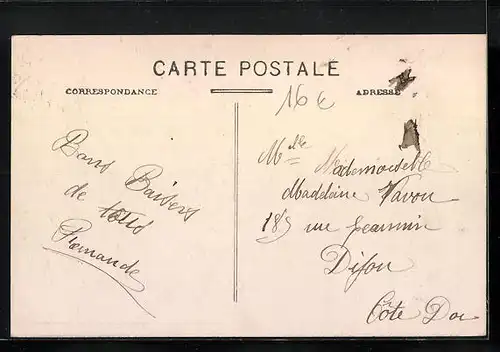 CARTE POSTALE
CORRESPONDANCE
ADRESSE
16 €
Bons Baisers
de tous
Romande
Mlle Mademoiselle
Madeleine Vavon
18 rue Jeannin
Dijon
Côte Dor